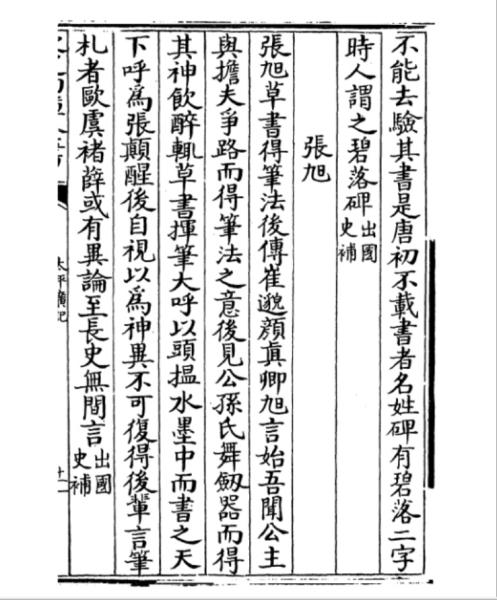 不能去驗其書是唐初不載書者名姓碑有碧落二字
時人謂之碧落碑出國史補
張旭
張旭草書得筆法後傳崔邈顔眞卿旭言始吾聞公主
與擔夫爭路而得筆法之意後見公孫氏舞劔器而得
其神飲醉輒草書揮筆大呼以頭揾水墨中而書之天
下呼爲張顛醒後自視以爲神異不可復得後輩言筆
札者歐虞褚薛或有異論至長史無間言出國史補
太平廣記
十二